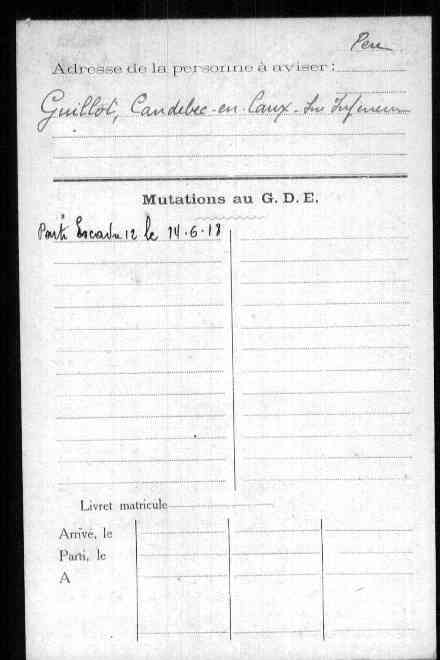 Pere
Adresse de la personne à aviser :
Guillot, Caudebec-en-Caux-Sne Inferieure
Mutations au G. D. E.
Parti Escadre 12 le 14.6.18
Livret matricule
Arrivé, le
Parti, le
A